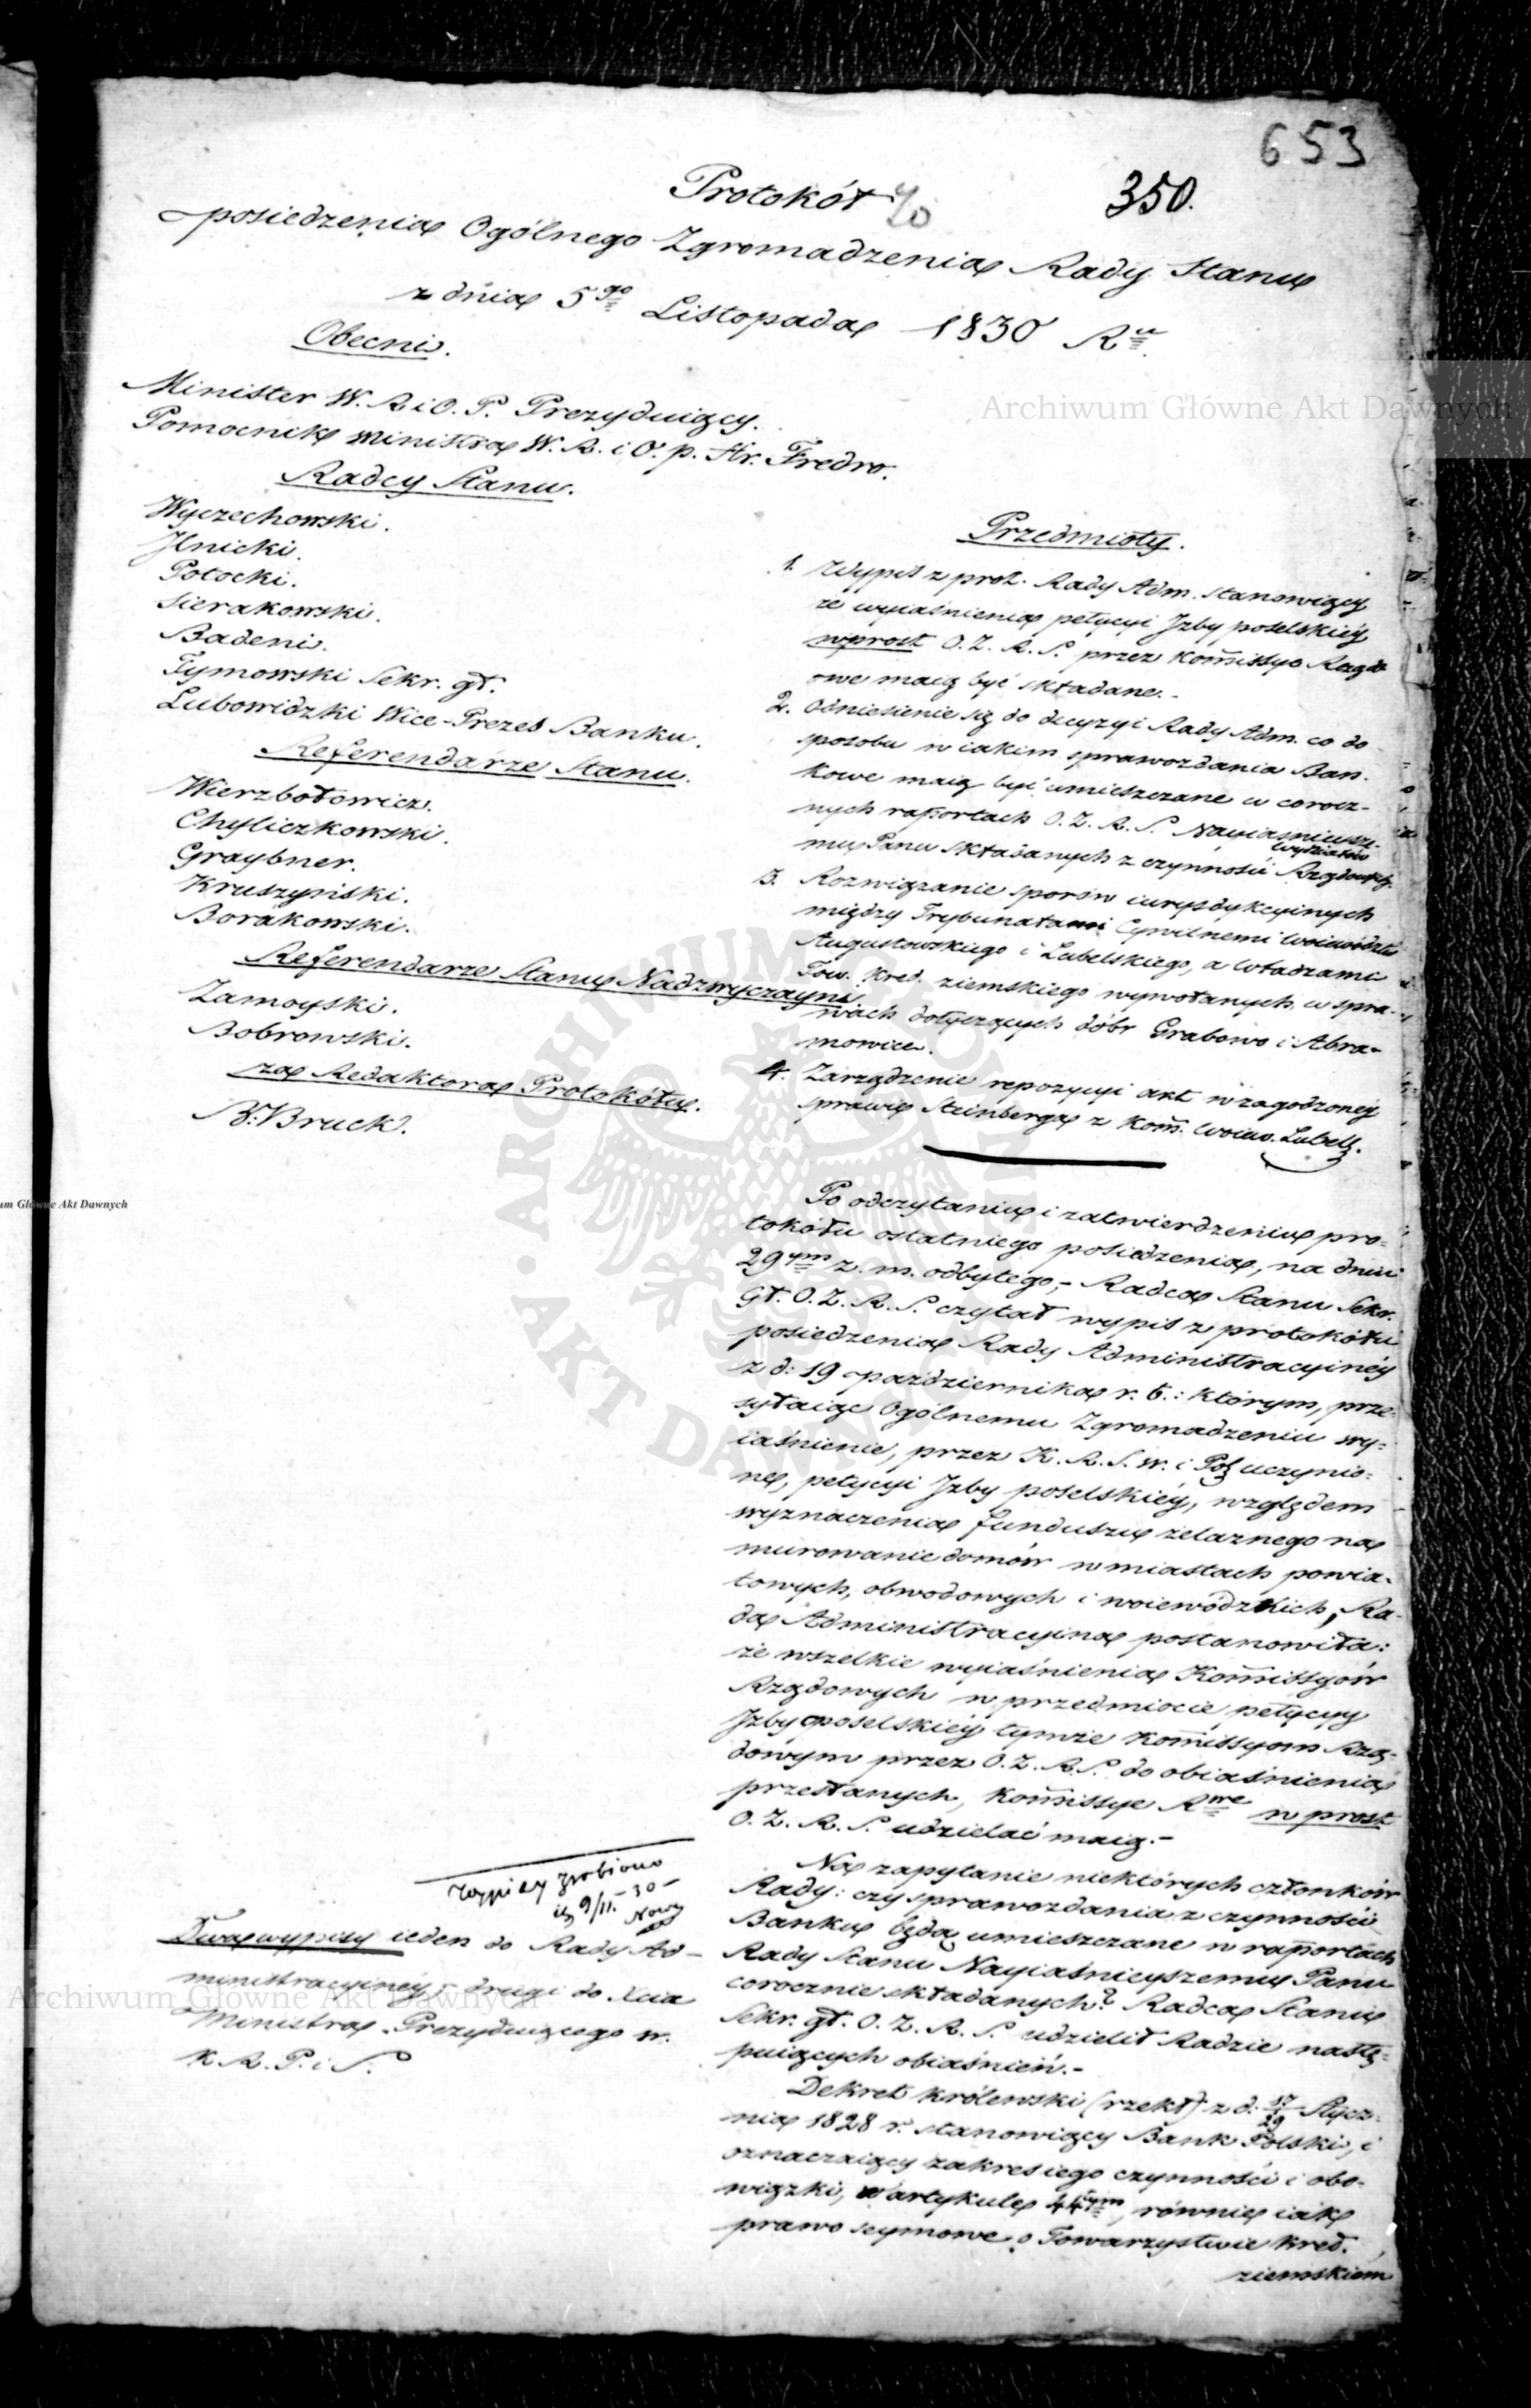 653
350.
Protokół
posiedzenia Ogólnego Zgromadzenia Rady Stanu
z dnia 5go Listopada 1830 Ru.
Obecni.
Minister W. R. i O. P. Prezyduiący.
Pomocnik Ministra W. R. i O. P. Hr. Fredro.
Radcy Stanu.
Wyczechowski.
Jlnicki.
Potocki.
Sierakowski.
Badeni.
Tymowski Sekr. gł.
Lubowidzki Wice-Prezes Banku.
Referendarze Stanu.
Wierzbołowicz.
Chyliczkowski.
Graybner.
Kruszyński.
Borakowski.
Referendarze Stanu Nadzwyczayni
Zamoyski.
Bobrowski.
za Redaktora Protokółu.
B. Bruck.
Przedmioty.
1. Wypis z prot. Rady Adm. stanowiący
że wyiaśnienia petycyi Jzby poselskiéy
wprost O. Z. R. S. przez Kommissye Rządo
owe maią być składane.-
2. Odniesienie się do decyzyi Rady Adm. co do
sposobu w iakim sprawozdania Ban-
kowe maią być umieszczane w corocz-
nych raportach O. Z. R. S. Nayiaśnieysze-
mu Panu składanych z czynności wydziałów Rządowych.
3. Rozwiązanie sporów iurysdykcyinych
między Trybunałami Cywilnemi Woiewództw
Augustowskiego i Lubelskiego, a władzami
Tow. Kred. ziemskiego wywołanych w spra-
wach dotyczących dóbr Grabowo i Abra-
mowice.
4. Zarządzenie repozycyi akt w zagodzonéy
sprawie Steinberga z Kom. Woiew. Lubels.
Po odczytaniu i zatwierdzeniu pro-
tokółu ostatniego posiedzenia, na dniu
29ym z. m. odbytego,- Radca Stanu Sekr.
Gł. O. Z. R. S. czytał wypis z protokółu
posiedzenia Rady Administracyinéy
z d: 19 października r. b.: którym, prze-
syłaiąc Ogólnemu Zgromadzeniu wy-
iaśnienie, przez K. R. S. W. i Pol uczynio-
ne, petycyi Jzby poselskiéy, względem
wyznaczenia funduszu żelaznego na
murowanie domów w miastach powia-
towych, obwodowych i woiewódzkich, Ra-
da Administracyina postanowiła:
że wszelkie wyiaśnienia Kommissyów
Rządowych w przedmiocie petycyy
Jzby poselskiéy tymże Kommissyom Rzą-
dowym przez O. Z. R. S. do obiaśnienia
przesłanych, Kommissye Rwe wprost
O. Z. R. S. udzielać maią.-
Na zapytanie niektórych członków
Rady: czy sprawozdania z czynności
Banku będą umieszczane w raportach
Rady Stanu Nayiaśnieyszemu Panu
corocznie składanych? Radca Stanu
Sekr. gł. O. Z. R. S. udzielił Radzie nastę-
puiących obiaśnień.-
Dekret królewski (rzekł) z d: 17/29 Stycz-
nia 1828 r. stanowiący Bank Polski, i
oznaczaiący zakres iego czynności i obo-
wiązki, w artykule 44tym, równie iak
prawo seymowe o Towarzystwie Kred.
ziemskiem
wypisy zrobiono
9/11.-30-
Dwa wypisy ieden do Rady Ad-
ministracyinéy,- drugi do Xcia
Ministra Prezyduiącego w.
K. R. P. i S.
Archiwum Główne Akt Dawnych
um Główne Akt Dawnych
ARCHIWUM GŁÓWNE
AKT DAWNYCH
Archiwum Główne Akt Dawnych